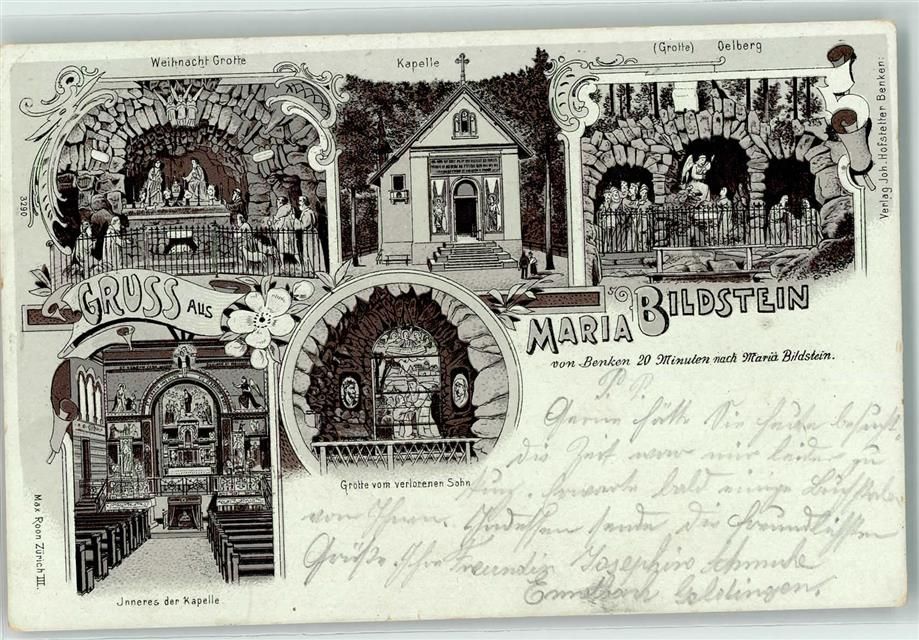 Weihnacht Grotte
Kapelle
(Grotte) Oelberg
Verlag Joh. Hofstetter Benken:
3290
GRUSS AUS
MARIA BILDSTEIN
von Benken 20 Minuten nach Maria Bildstein.
P. P.
Gerne hätte Sie heute besucht
die Zeit war mir leider zu
kurz. Erwarte bald einige
von Ihnen. Indessen sende die freundlichsten
Grüße Ihre Freundin Josephine
Goldingen.
Grotte vom verlorenen Sohn
Max Roon Zürich III.
Jnneres der Kapelle